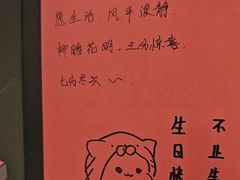 愿生活，风平浪静，
柳暗花明，三分惊喜
七分尽兴～
不止生
生日快